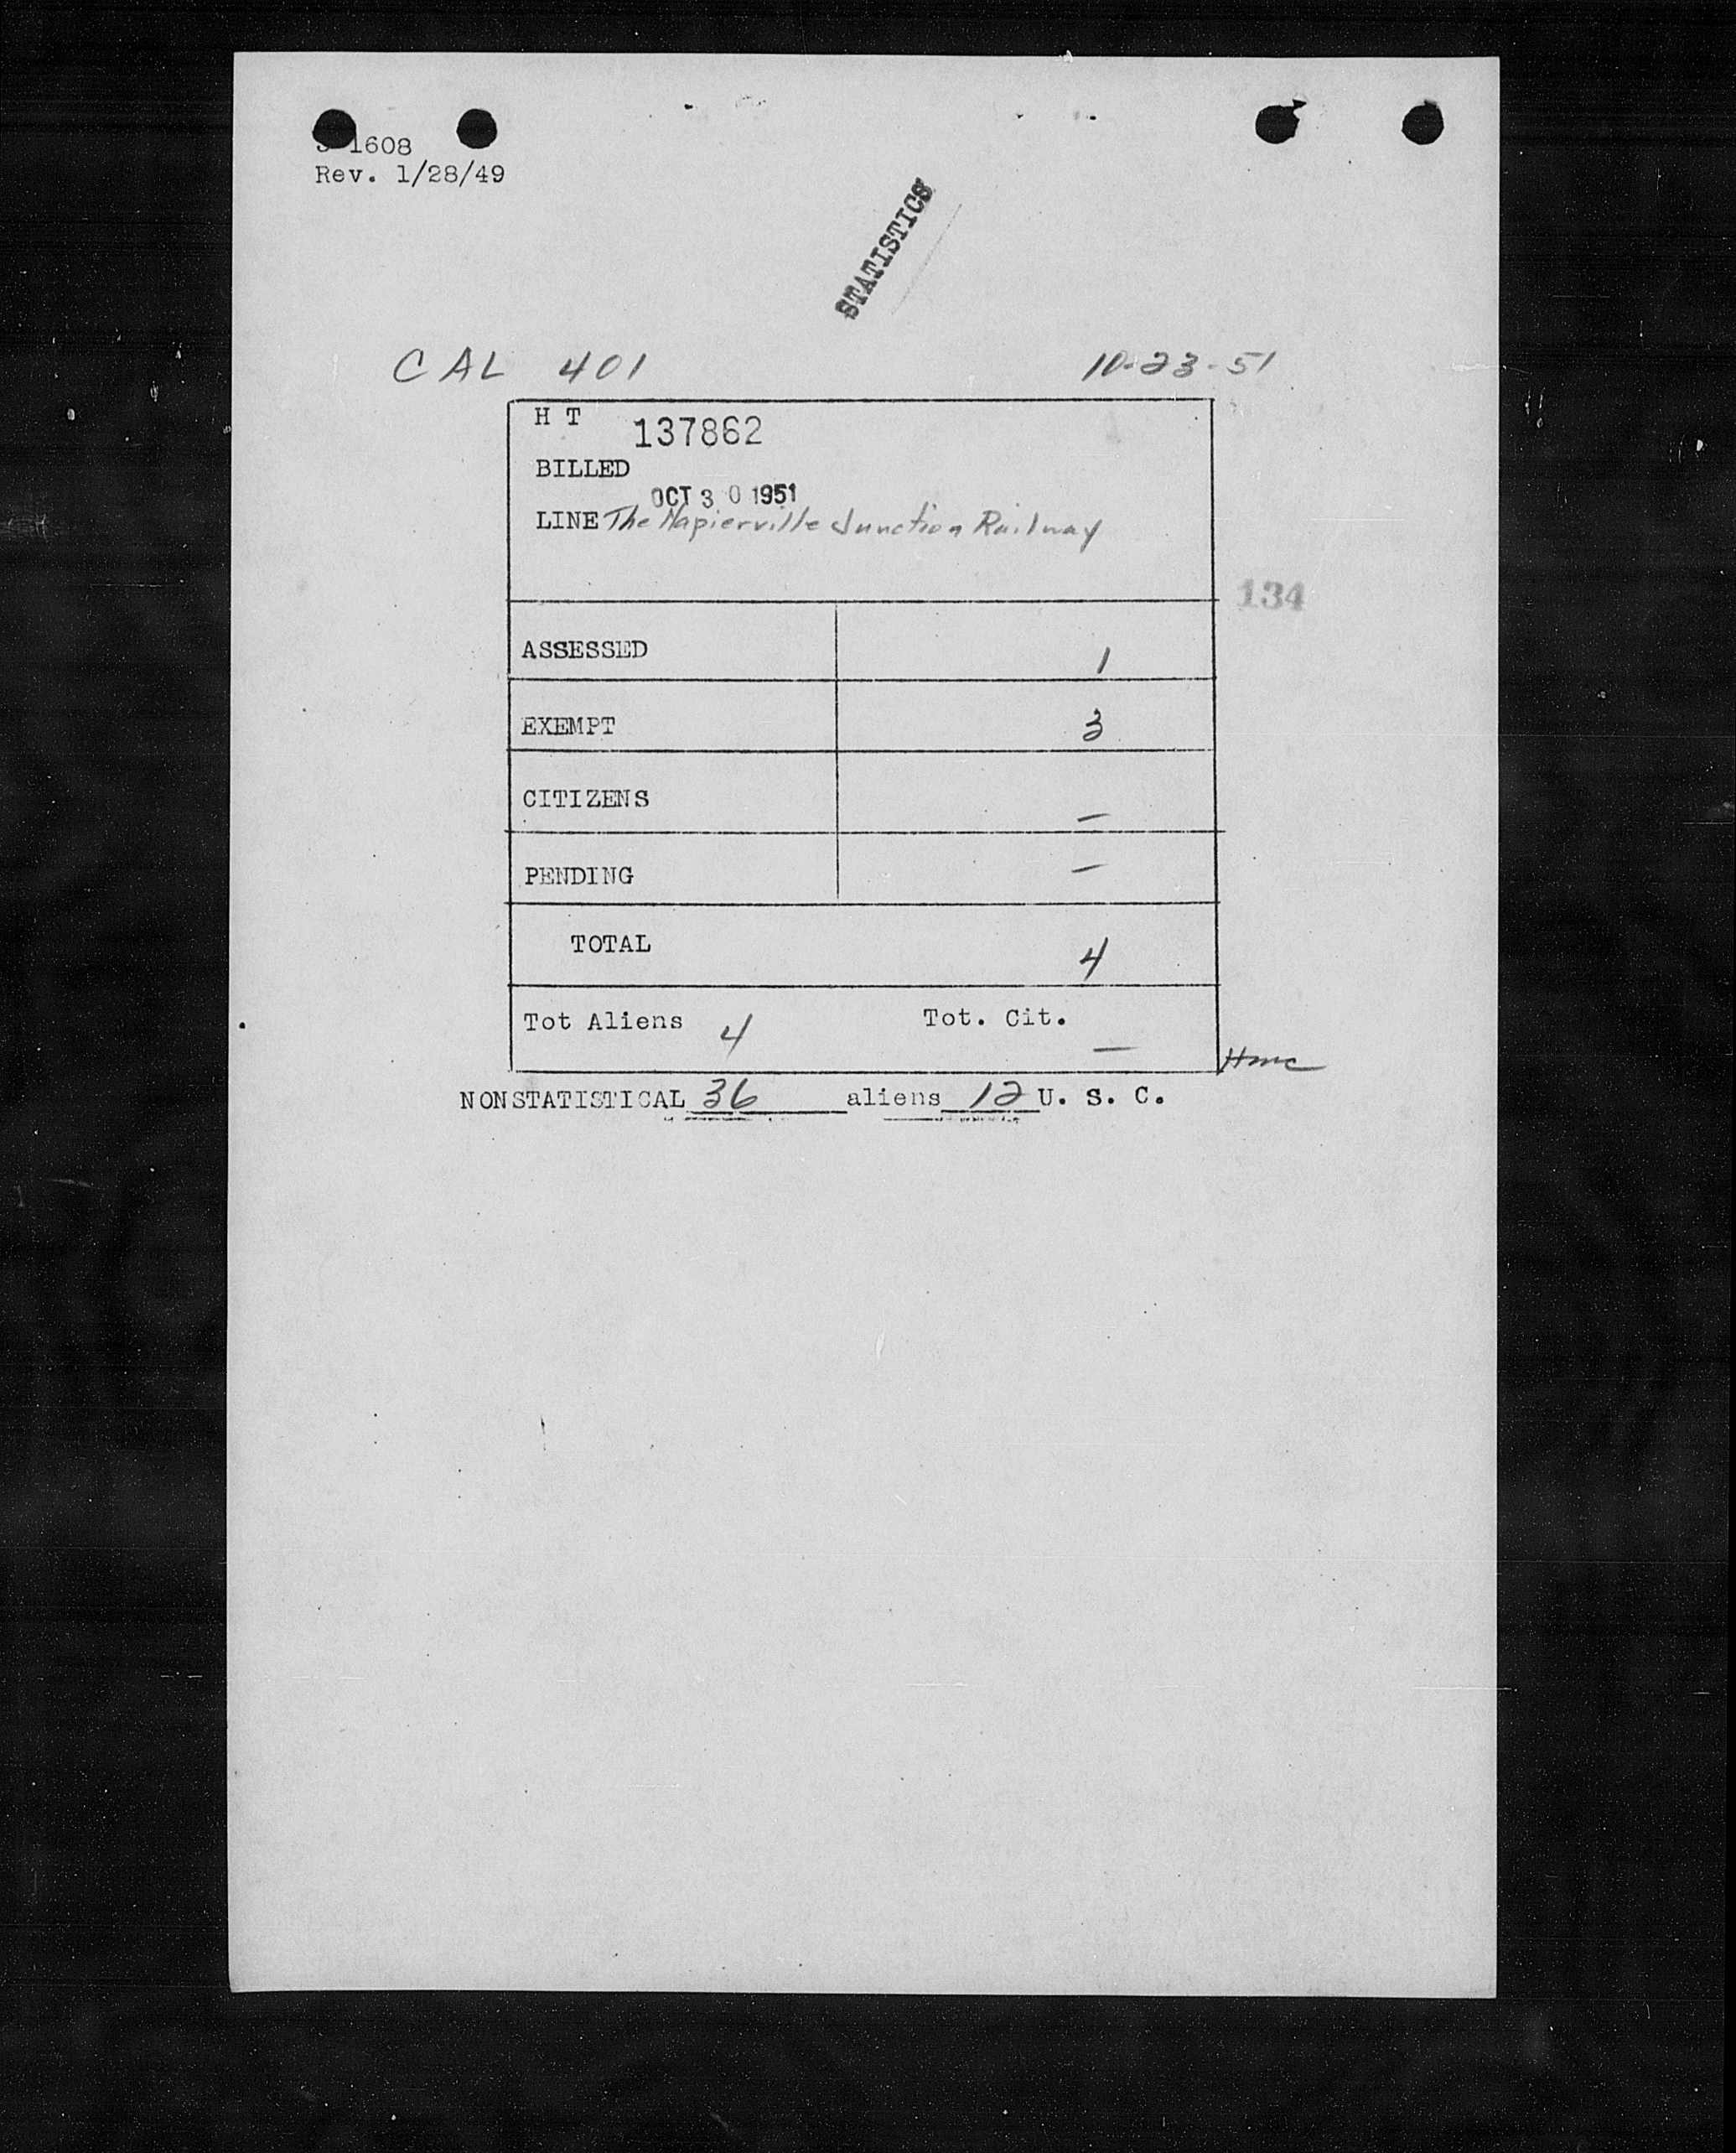 1608
Rev. 1/28/49
STATISTICS
CAL 401 10-23-51
H T 137862
BILLED
OCT 30 1951
LINE The Napierville Junction Railway
134
ASSESSED 1
EXEMPT 3
CITIZENS –
PENDING –
TOTAL 4
Tot Aliens 4 Tot. Cit. –
NONSTATISTICAL 36 aliens 12 U. S. C.